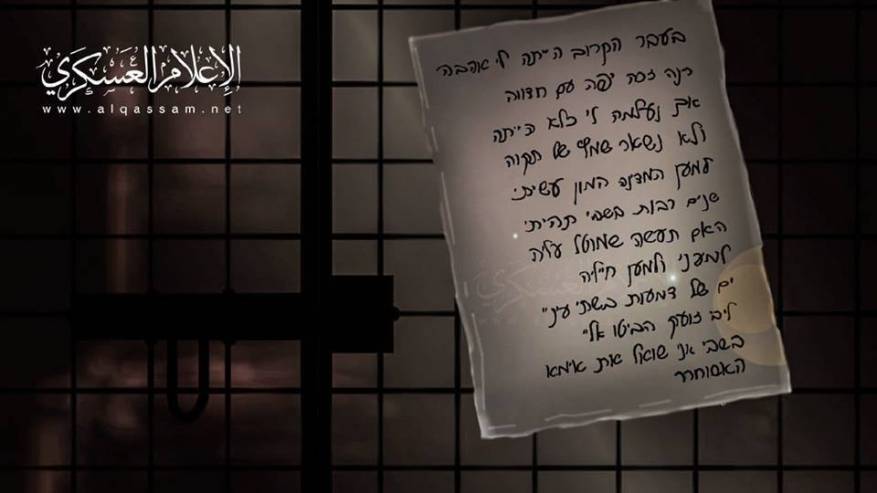 الإعلام العسكري
www.alqassam.net
בעבר הקרוב הייתה לי אהבה
רנה זכה יפה עם חדווה
אך נעלמה לי כלא הייתה
ולא נשאר שמץ של תקוה
למען המדינה המון עשיתי
שנים רבות בשבי תהיתי
האם תעשה שמוטל עליה
למעני ולמען חייליה
ים של דמעות בשתי עיני"
ליבי זועק הביטו אלי"
בשבי אני שואל את אימא
האסוחרר